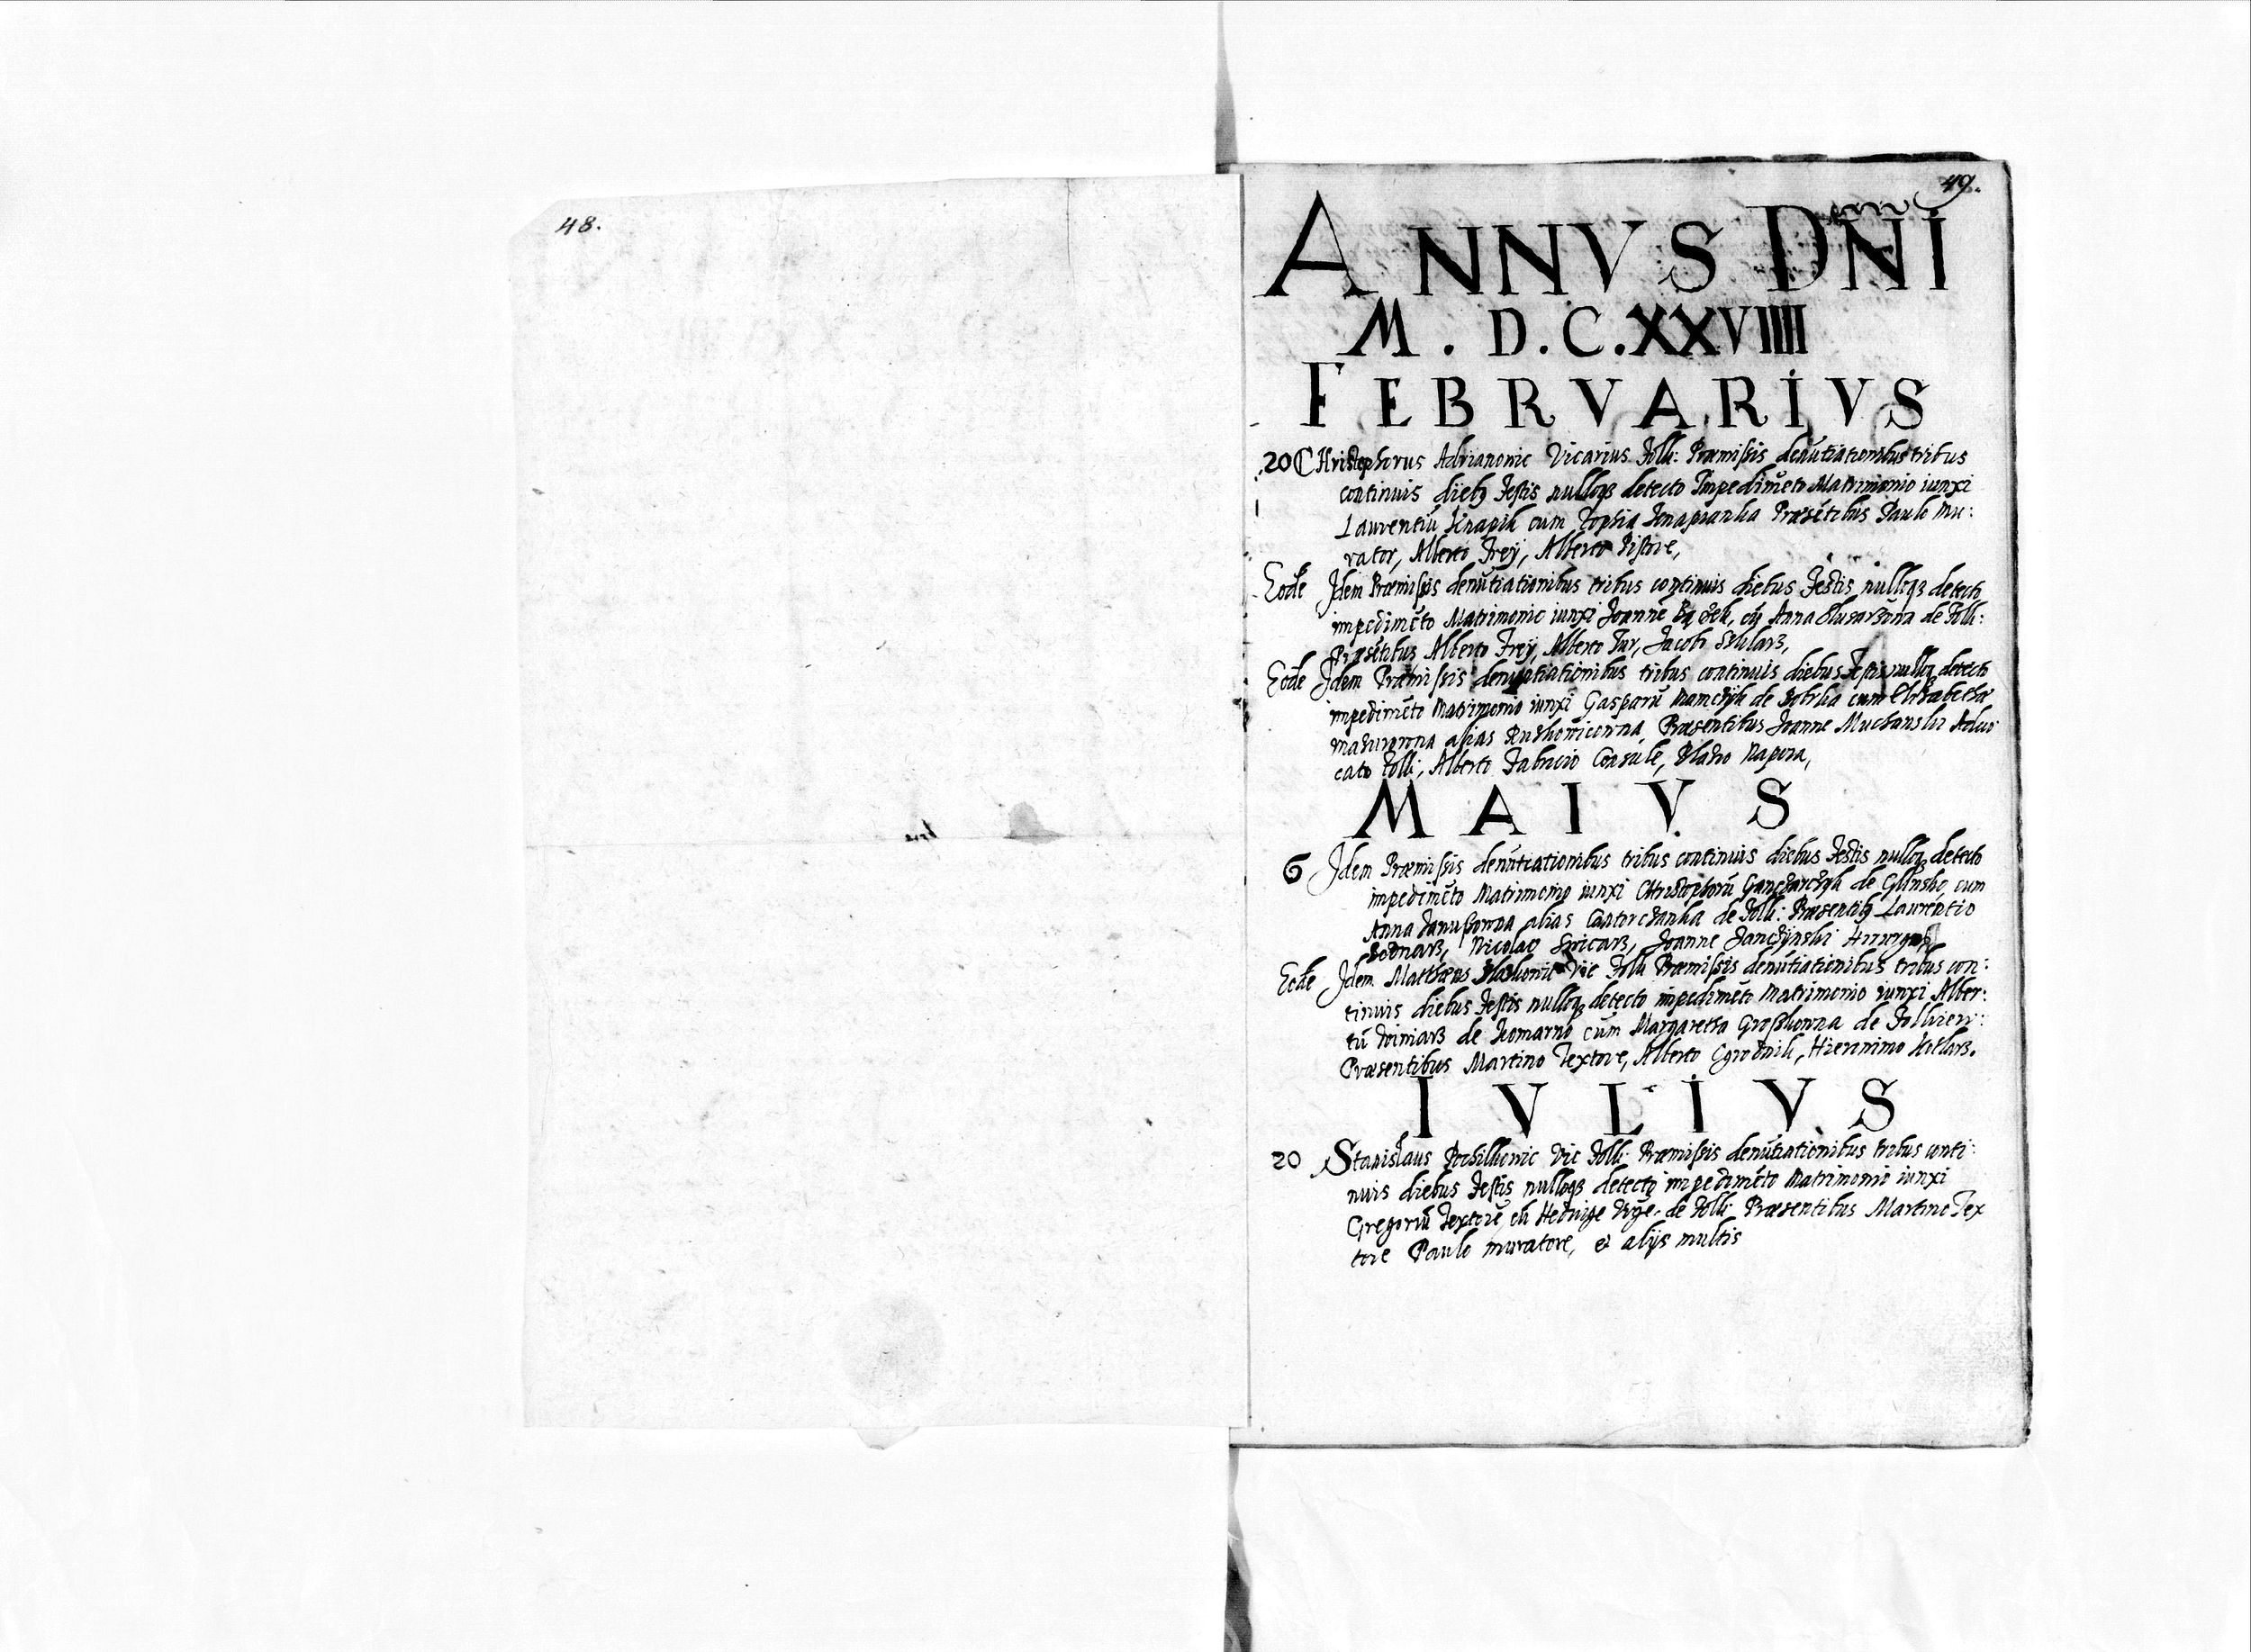 48.
49.
ANNVS DÑI
M.D.C.XXVIIII
FEBRVARIVS
20 CHristophorus Adrianowic Vicarius Zolk: Præmissis denũtiationibus tribus
continuis diebꝫ Festis nulloqꝫ detecto Impedimẽto Matrimonio iunxi
Laurentiũ Knapik cum Zophia Præsẽtibus Paulo Mu:
rator, Alberto Frey, Alberto Pistore,
Eodẽ Idem Præmissis denũtiationibus tribus continuis diebus Festis nulloqꝫ detecto
impedimẽto Matrimonio iunxi Joannẽ cũ Anna de Zolk:
Præsẽtibus Alberto Frey, Alberto Tur, Jacobo
Eodẽ Idem Præmissis denuntiationibus tribus continuis diebus Festis nulloqꝫ detecto
impedimẽto Matrimonio iunxi Gasparũ de cum Elizabetha
alias Præsentibus Joanne Aduo
cato Zolk:, Alberto Fabricio Consule, Napora,
MAIVS
6 Idem Præmissis denũtiationibus tribus continuis diebus Festis nulloqꝫ detecto
impedimẽto Matrimonio iunxi Christophorũ de Glinsko, cum
Anna alias de Zolk: Præsentibꝫ Laurẽntio
Bednarz, Nicolao Joanne Janczÿnski
Eodẽ Idem Matthæus Vic Zolk Præmissis denũtiationibus tribus con:
tinuis diebus Festis nulloqꝫ detecto impedimẽto Matrimonio iunxi Alber:
tũ de Komarno cũm Margaretha de Zolkiew:
Præsentibus Martino Textore, Alberto Ogrodnik, Hieronimo Kotlarz.
IVLIVS
20 Stanislaus Vic Zolk: Præmissis denũtiationibus tribus conti:
nuis diebus Festis nulloqꝫ detecto impedimẽto Matrimonio iunxi
Gregoriũ Textorẽ, cũ Hedvige de Zolk: Præsentibus Martino Tex
tore Paulo muratore, & alijs multis